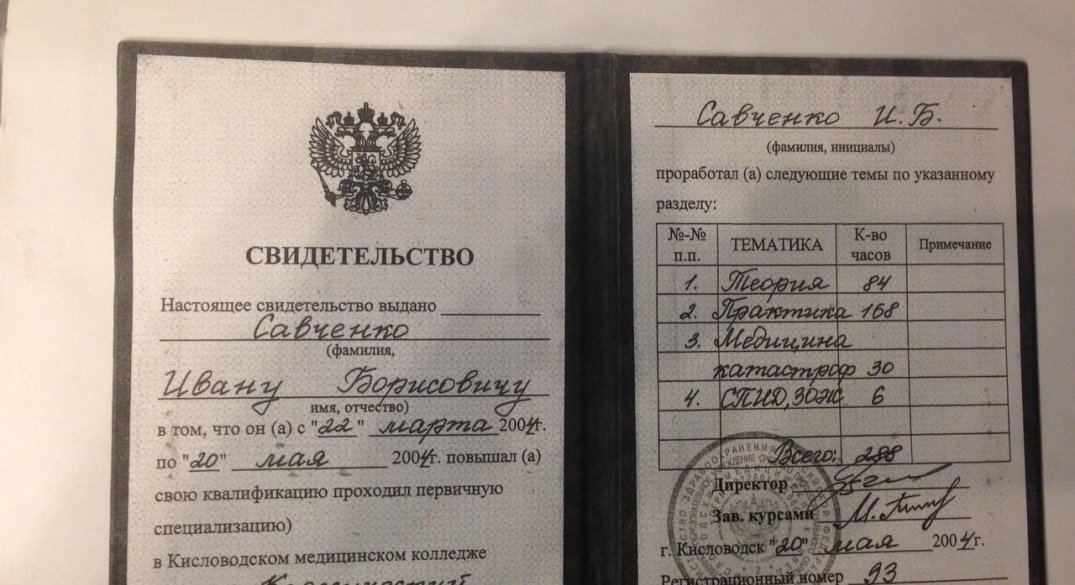 СВИДЕТЕЛЬСТВО
Настоящее свидетельство выдано
Савченко
(фамилия,
Ивану Борисовичу
имя, отчество)
в том, что он (а) с "22" марта 2004г.
по "20" мая 2004г. повышал (а)
свою квалификацию проходил первичную
специализацию)
в Кисловодском медицинском колледже
Савченко И.Б.
(фамилия, инициалы)
проработал (а) следующие темы по указанному
разделу:
№-№ п.п. ТЕМАТИКА К-во часов Примечание
1. Теория 84
2. Практика 168
3. Медицина
катастроф 30
4. СПИД, ЗОЖ 6
Всего: 288
Директор
Зав. курсами
г. Кисловодск "20" мая 2004г.
Регистрационный номер 93